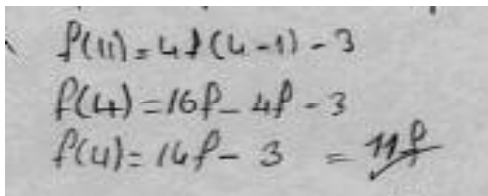 f(4)=4f(4-1)-3
f(4)=16f-4f-3
f(4)=14f-3 =11f